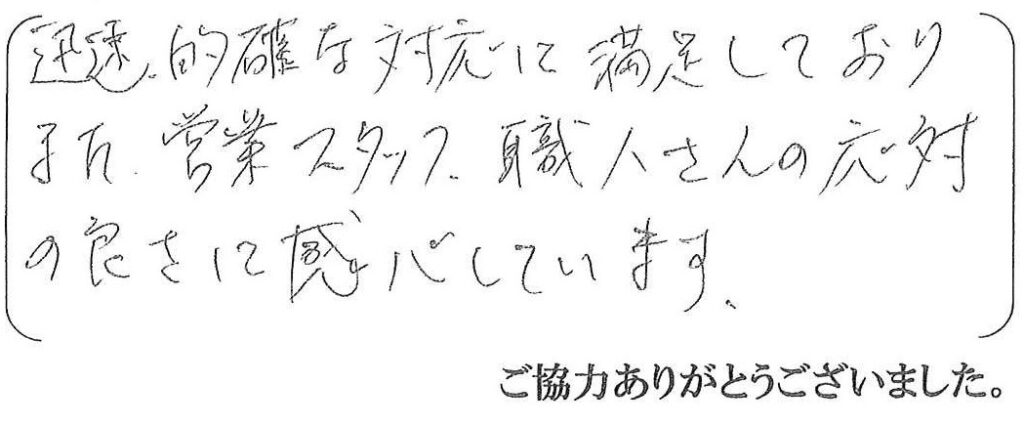 迅速、的確な対応に満足しており
また、営業スタッフ、職人さんの応対
の良さに感心しています、
ご協力ありがとうございました。